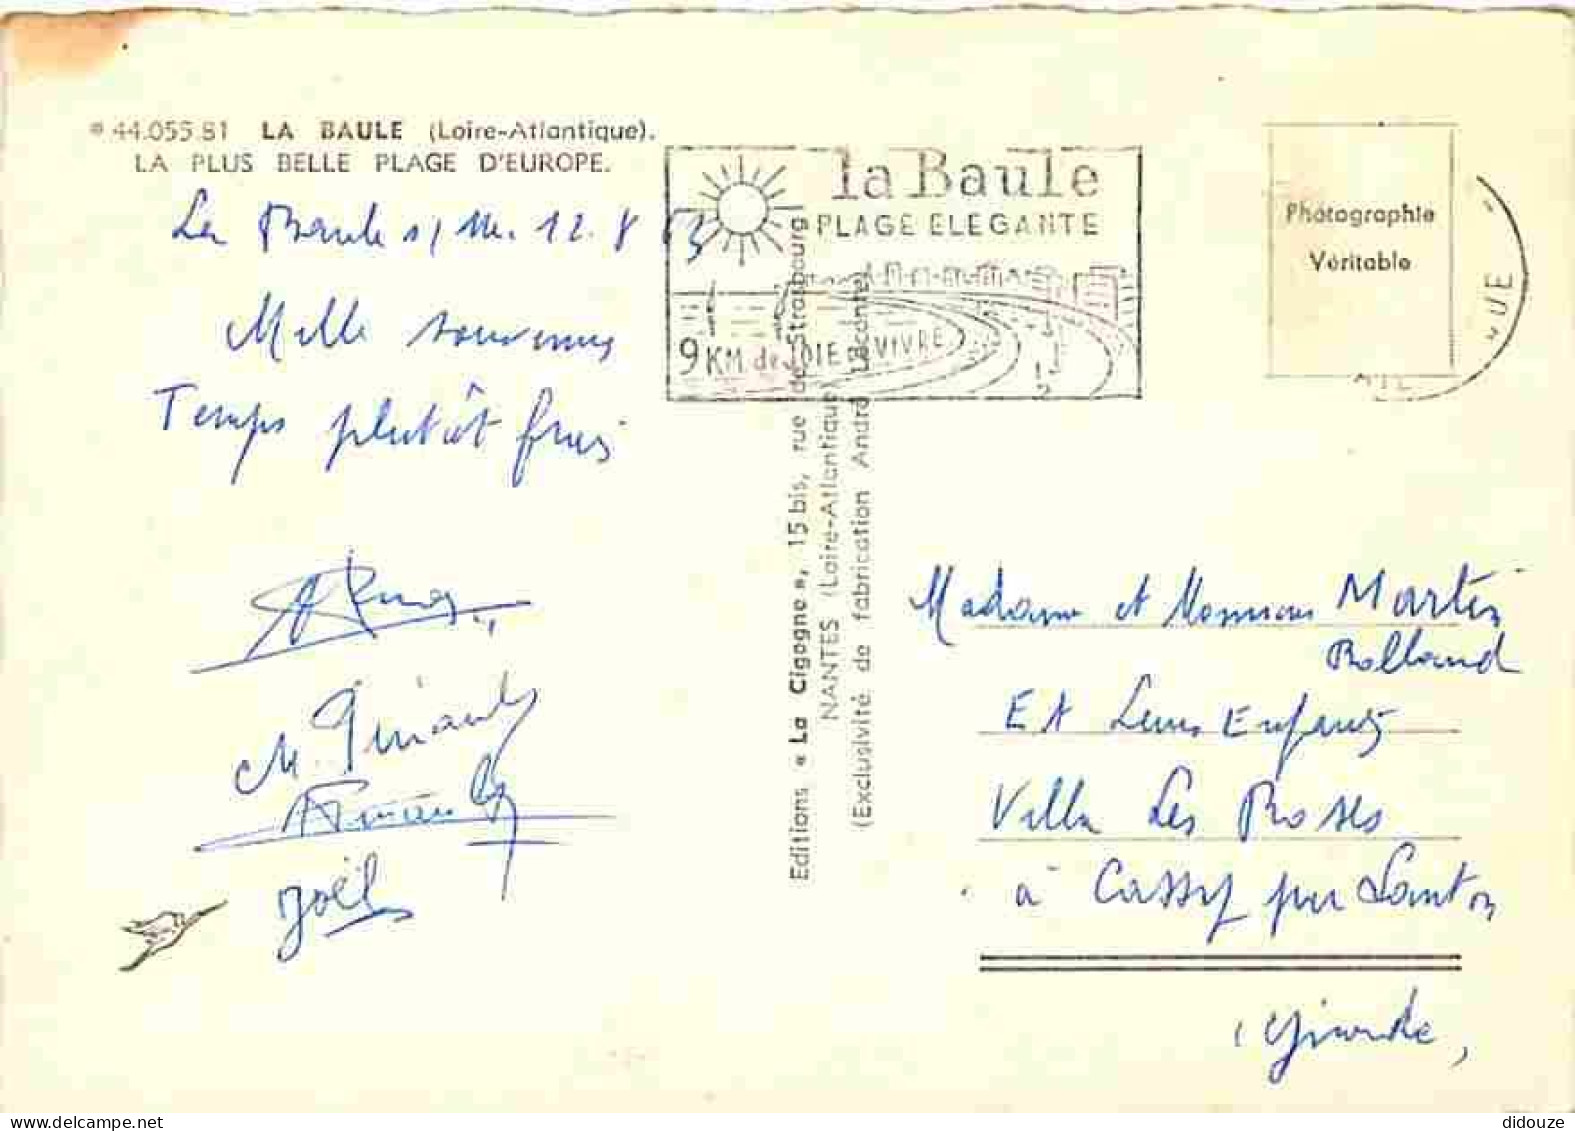 44.055.81 LA BAULE (Loire-Atlantique).
LA PLUS BELLE PLAGE D'EUROPE.
La Baule s/m. 12. 8 63
Mille souvenirs
Temps plutôt frais
M. Pinault
Joël
la Baule
PLAGE ELEGANTE
9 KM. de JOIE VIVRE
Editions « La Cigogne », 15 bis, rue de Strasbourg
NANTES (Loire-Atlantique
(Exclusivité de fabrication André Lecomte)
Photographie
Véritable
Madame et Monsieur Martin
Rolland
Et Leurs Enfants
Villa Les Roses
à Cassy par Lanton
(Gironde,
delcampe.net
didouze